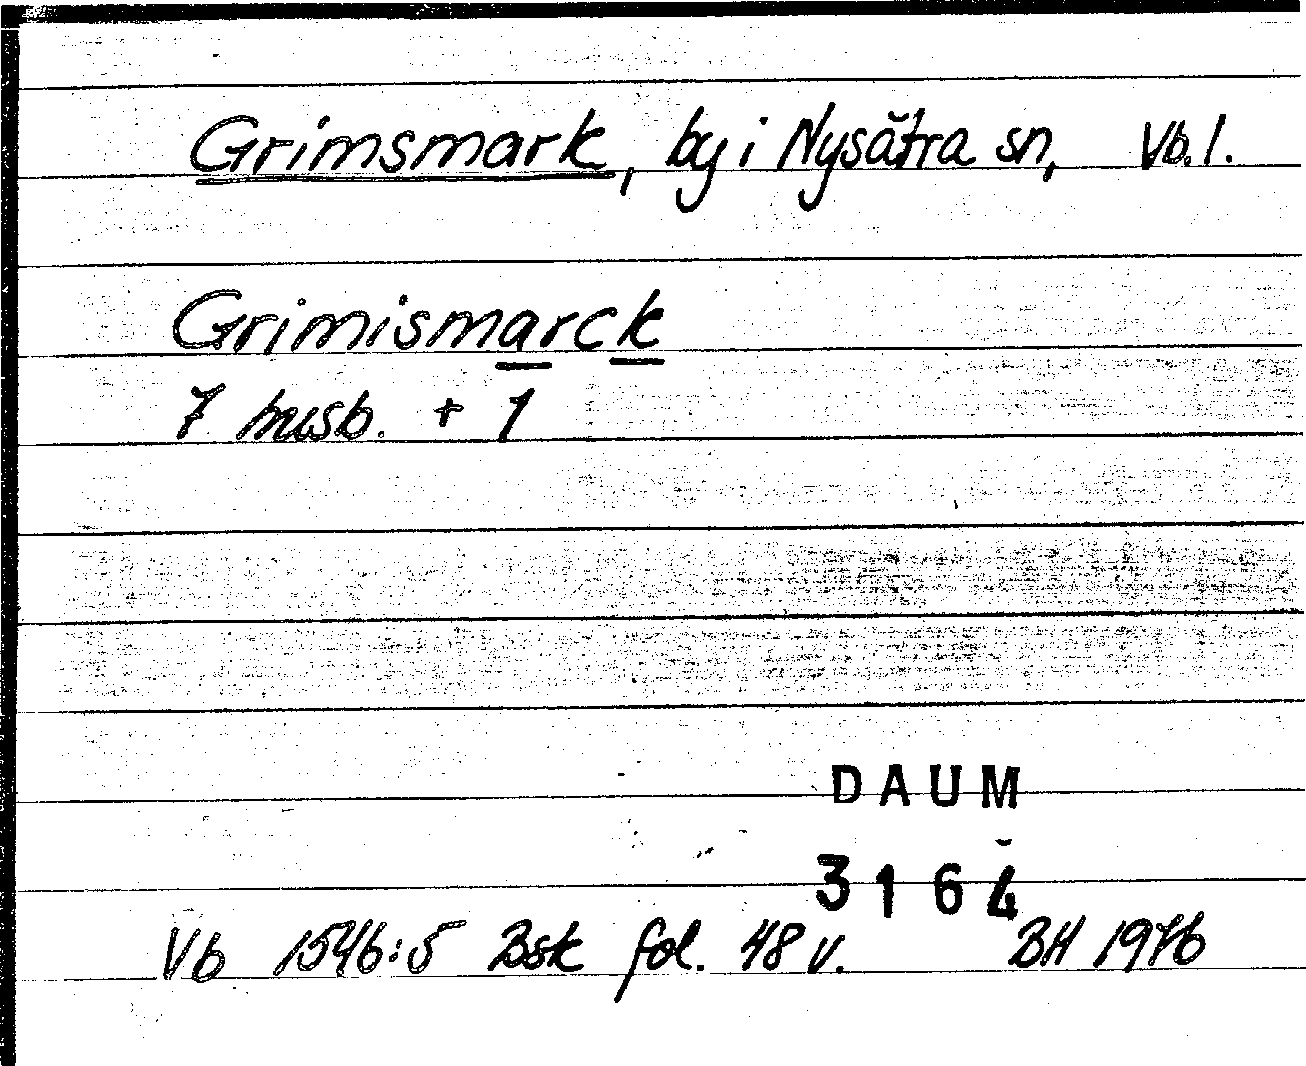 Grimsmark, by i Nysätra sn, Vb. l.
Grimismarck
7 husb. + 1
DAUM
3164
Vb 1546:5 Bsk fol. 48 v. BH 1976